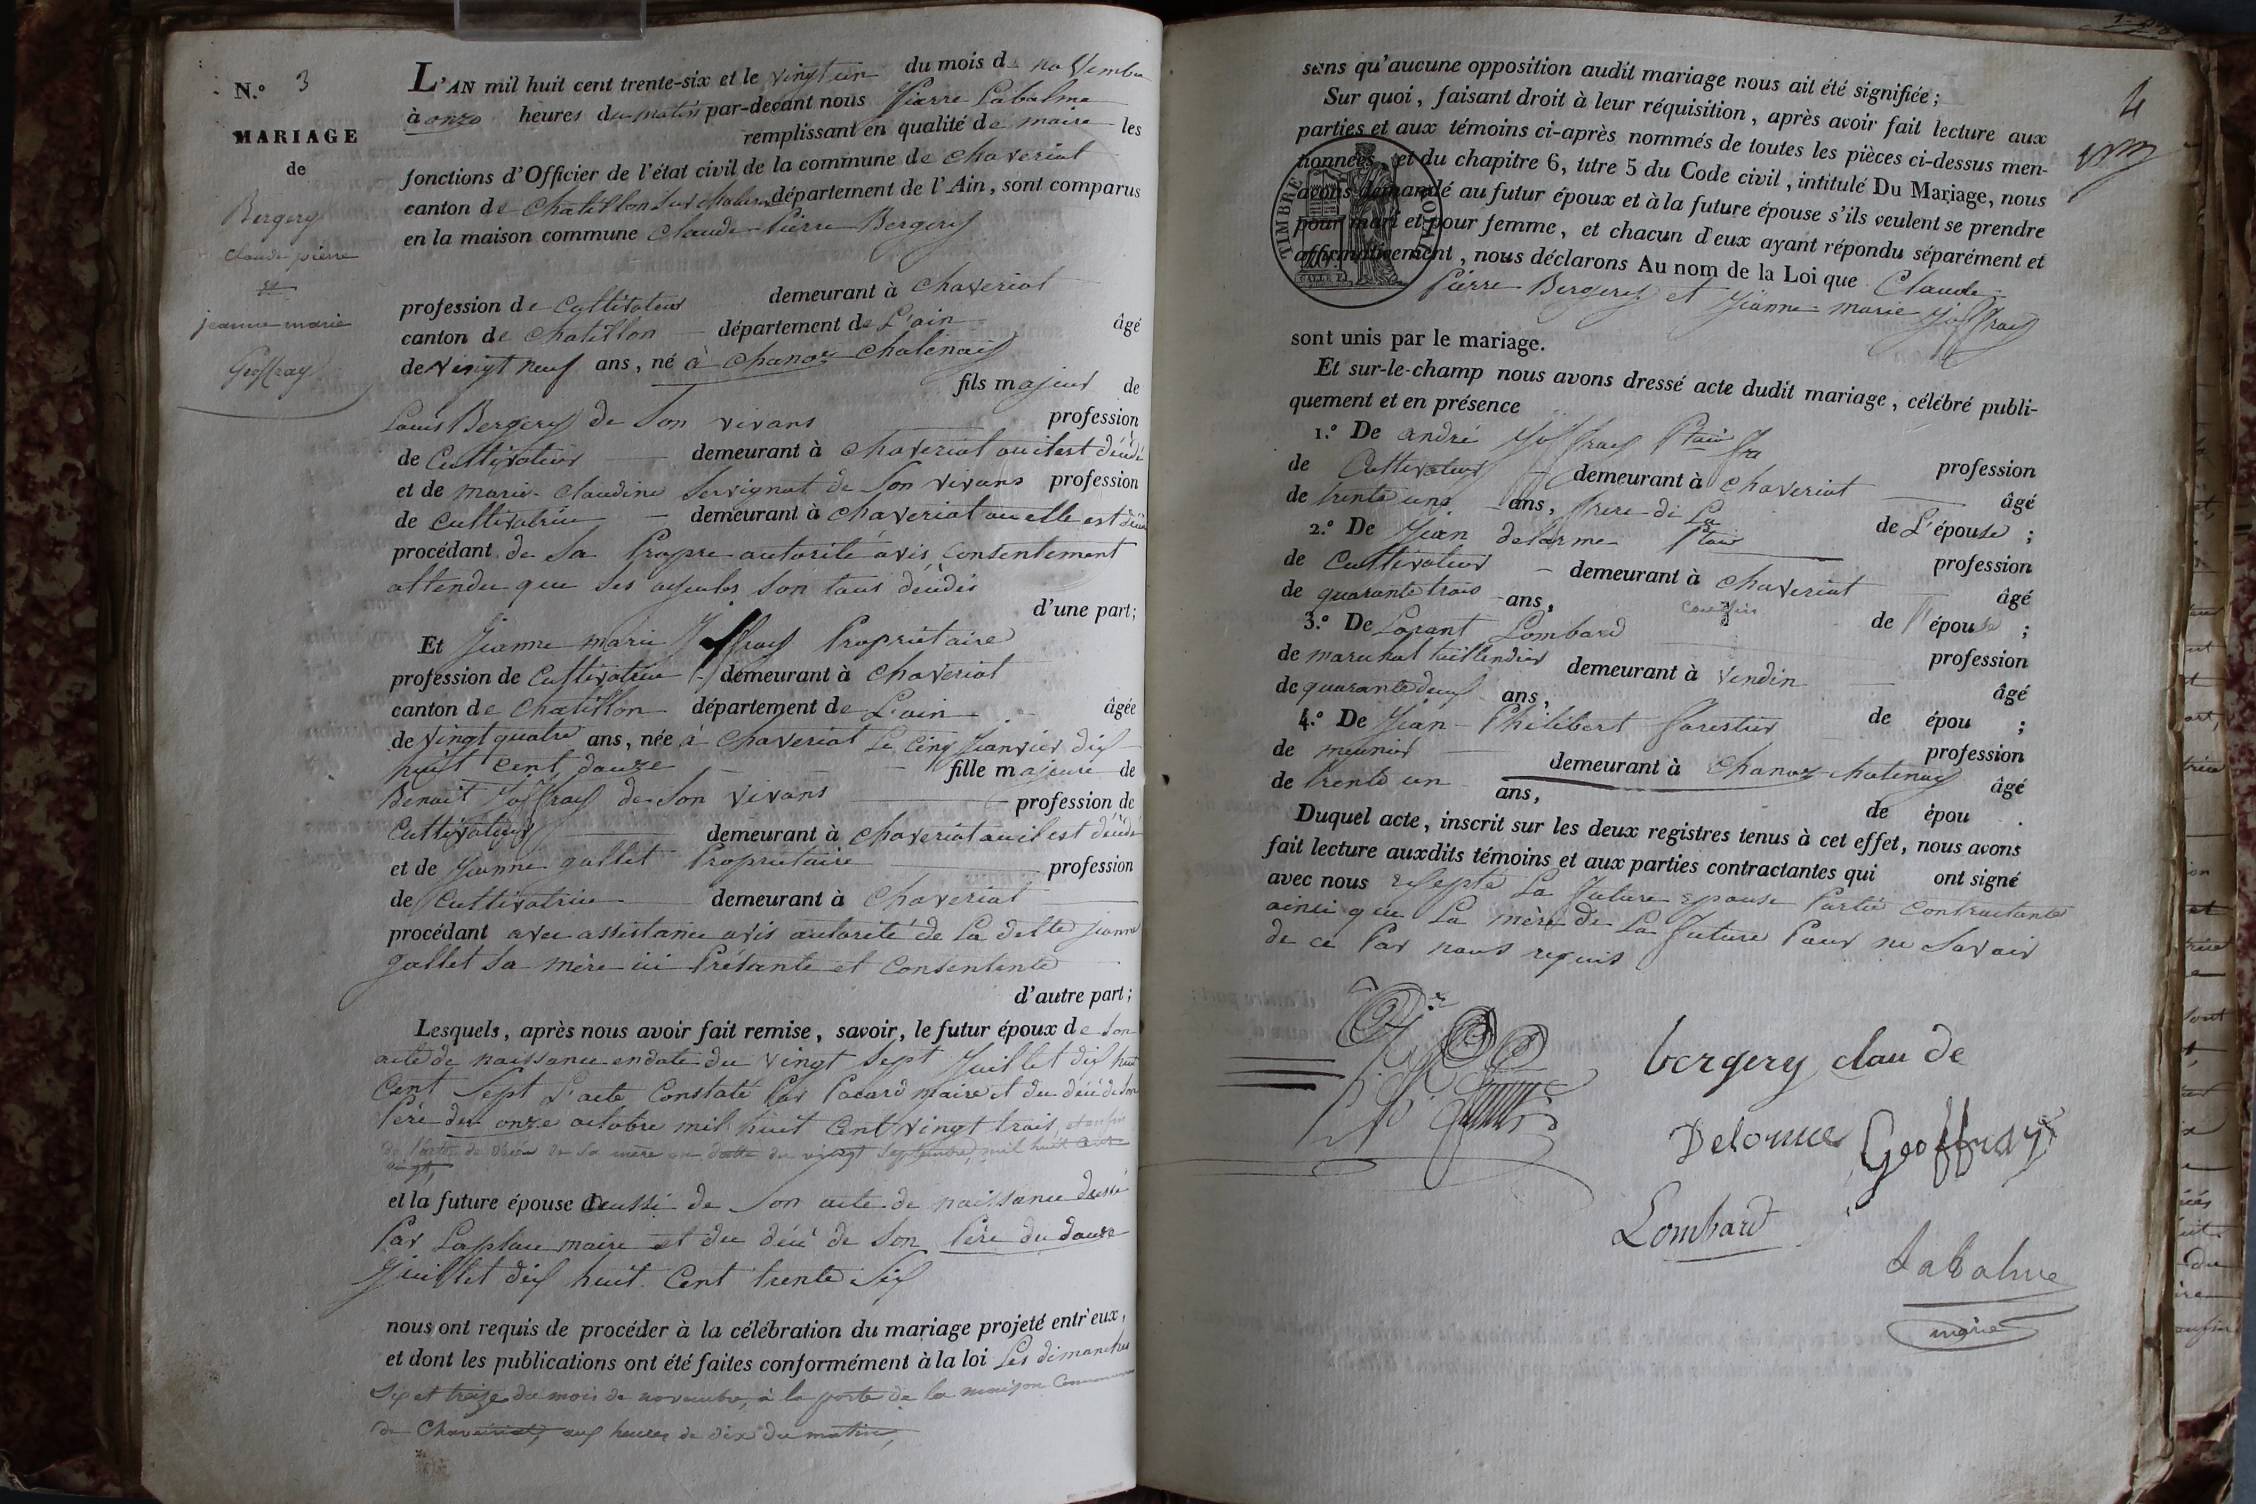 N.º 3
MARIAGE
de
Bergery
claude pierre
et
jeanne marie
Geoffray
L'AN mil huit cent trente-six et le vingt un du mois de novembre
à onze heures du matin par-devant nous Pierre Labalme
remplissant en qualité de maire les
fonctions d'Officier de l'état civil de la commune de chaveriat
canton de chatillon sur chalaronne département de l'Ain, sont comparus
en la maison commune Claude Pierre Bergery
profession de Cultivateur demeurant à chaveriat
canton de chatillon département de L'ain âgé
de vingt neuf ans, né à chanoz chatenay
fils majeur de
Louis Bergery de Son vivans profession
de Cultivateur demeurant à chaveriat ou il est décédé
et de marie claudine Servignat de Son vivans profession
de cultivatrice demeurant à chaveriat ou elle est décédé
procédant de Sa Propre autorité avis consentement
attendu que Ses ayeules Son tous décédés
d'une part;
Et Jeanne marie Joffray Propriétaire
profession de Cultivatrice demeurant à chaveriat
canton de chatillon département de L'ain âgée
de vingt quatre ans, née à chaveriat Le cinq Janvier dix
huit cent douze fille majeure de
Benoit Joffray de Son vivans profession de
Cultivateur demeurant à chaveriat ou il est décédé
et de Jeanne gallet Propriétaire profession
de Cultivatrice demeurant à chaveriat
procédant avec assistance avis autorité de La ditte Jeanne
gallet Sa mère ici Présante et Consentente
d'autre part;
Lesquels, après nous avoir fait remise, savoir, le futur époux de Son
acte de naissance en date du vingt Sept Juillet dix huit
Cent Sept L'acte Constaté Par Pacard maire et du décé de Son
Père du onze octobre mil huit Cent vingt trois, et enfin
de l'acte de décés de sa mère en datte du vingt septembre mil huit cent
vingt,
et la future épouse aussi de Son acte de naissance dressé
Par Laplace maire et du décé de Son Père du douze
Juillet dix huit Cent trente Six
nous ont requis de procéder à la célébration du mariage projeté entr'eux,
et dont les publications ont été faites conformément à la loi Les dimanches
six et treize du mois de novembre, à la porte de la maison Commune
de Chaveiriat, aux heures de dix du matin,
4
sans qu'aucune opposition audit mariage nous ait été signifiée;
Sur quoi, faisant droit à leur réquisition, après avoir fait lecture aux
parties et aux témoins ci-après nommés de toutes les pièces ci-dessus men-
tionnées, et du chapitre 6, titre 5 du Code civil, intitulé Du Mariage, nous
avons demandé au futur époux et à la future épouse s'ils veulent se prendre
pour mari et pour femme, et chacun d'eux ayant répondu séparément et
affirmativement, nous déclarons Au nom de la Loi que Claude
Pierre Bergery et Jeanne marie Joffray
TIMBRE ROYAL
sont unis par le mariage.
Et sur-le-champ nous avons dressé acte dudit mariage, célébré publi-
quement et en présence
1.º De andré Joffray Ptair profession
de Cultivateur demeurant à chaveriat âgé
de trente une ans, frère de La de L'épouse;
2.º De Jean delorme Ptair profession
de Cultivateur demeurant à chaveriat âgé
de quarante trois ans, cousin de l'épouse;
3.º De Lorant Lombard profession
de marechal taillendier demeurant à vendin âgé
de quarante deux ans, de épou ;
4.º De Jean Philibert forestier profession
de meunier demeurant à chanoz chatenay âgé
de trente un ans, de épou .
Duquel acte, inscrit sur les deux registres tenus à cet effet, nous avons
fait lecture auxdits témoins et aux parties contractantes qui ont signé
avec nous exsepté La future epouse Partie contractante
ainsi que La mère de La future Pour ne Savoir
de ce Par nous requis
bergery claude
Delorme Geoffray
Lombard
Labalme
maire